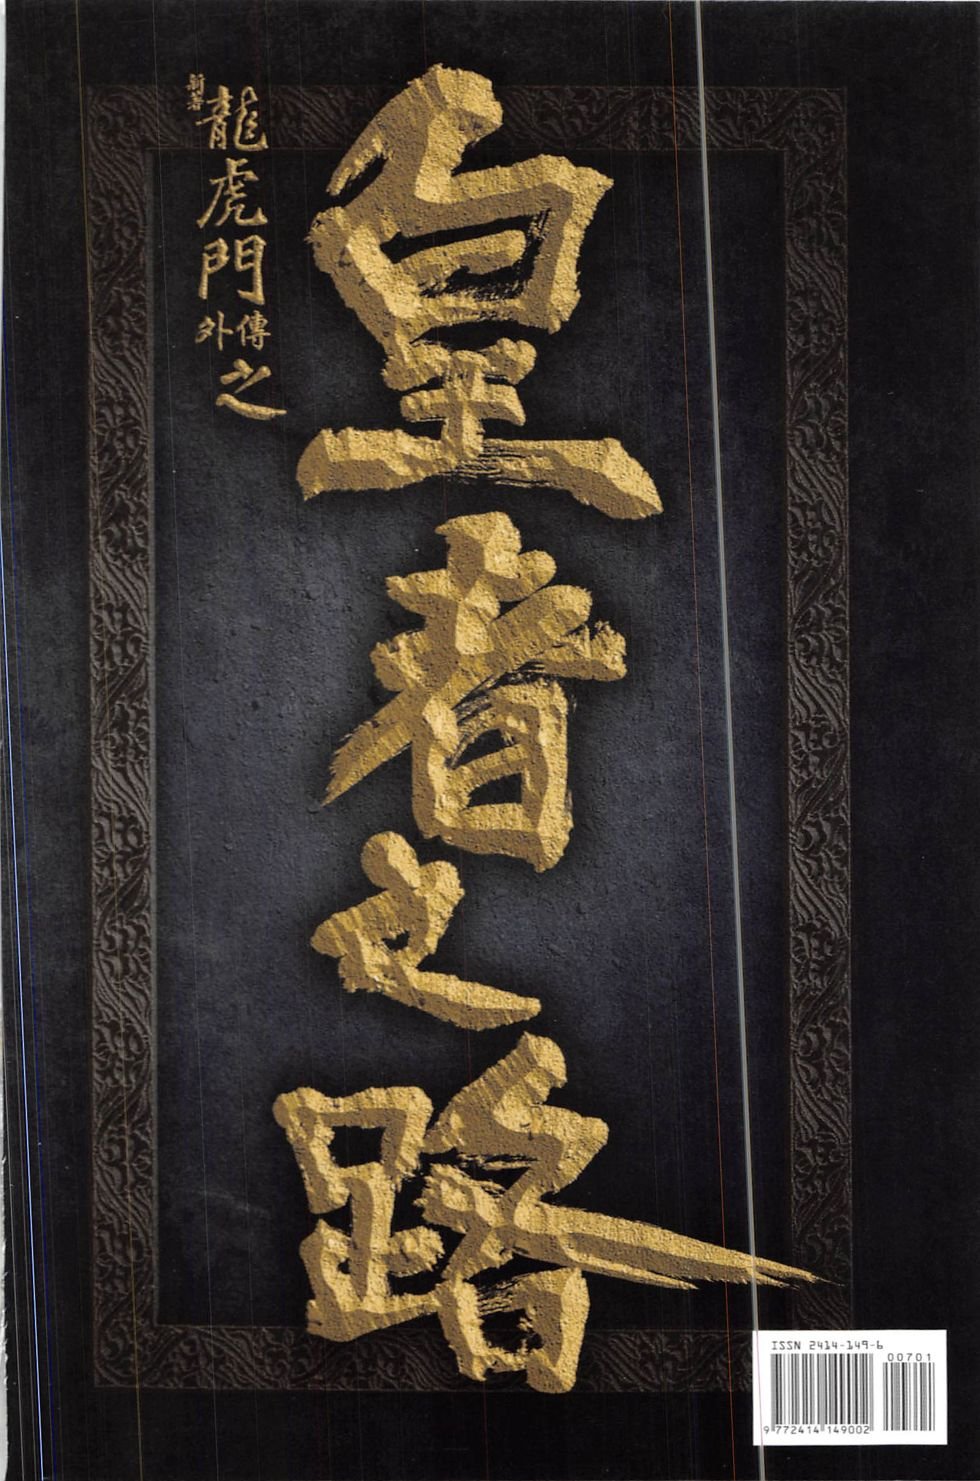 新著
龍虎門
外傳
之
皇者之路
ISSN 2414-149-6
00701
9 772414 149002